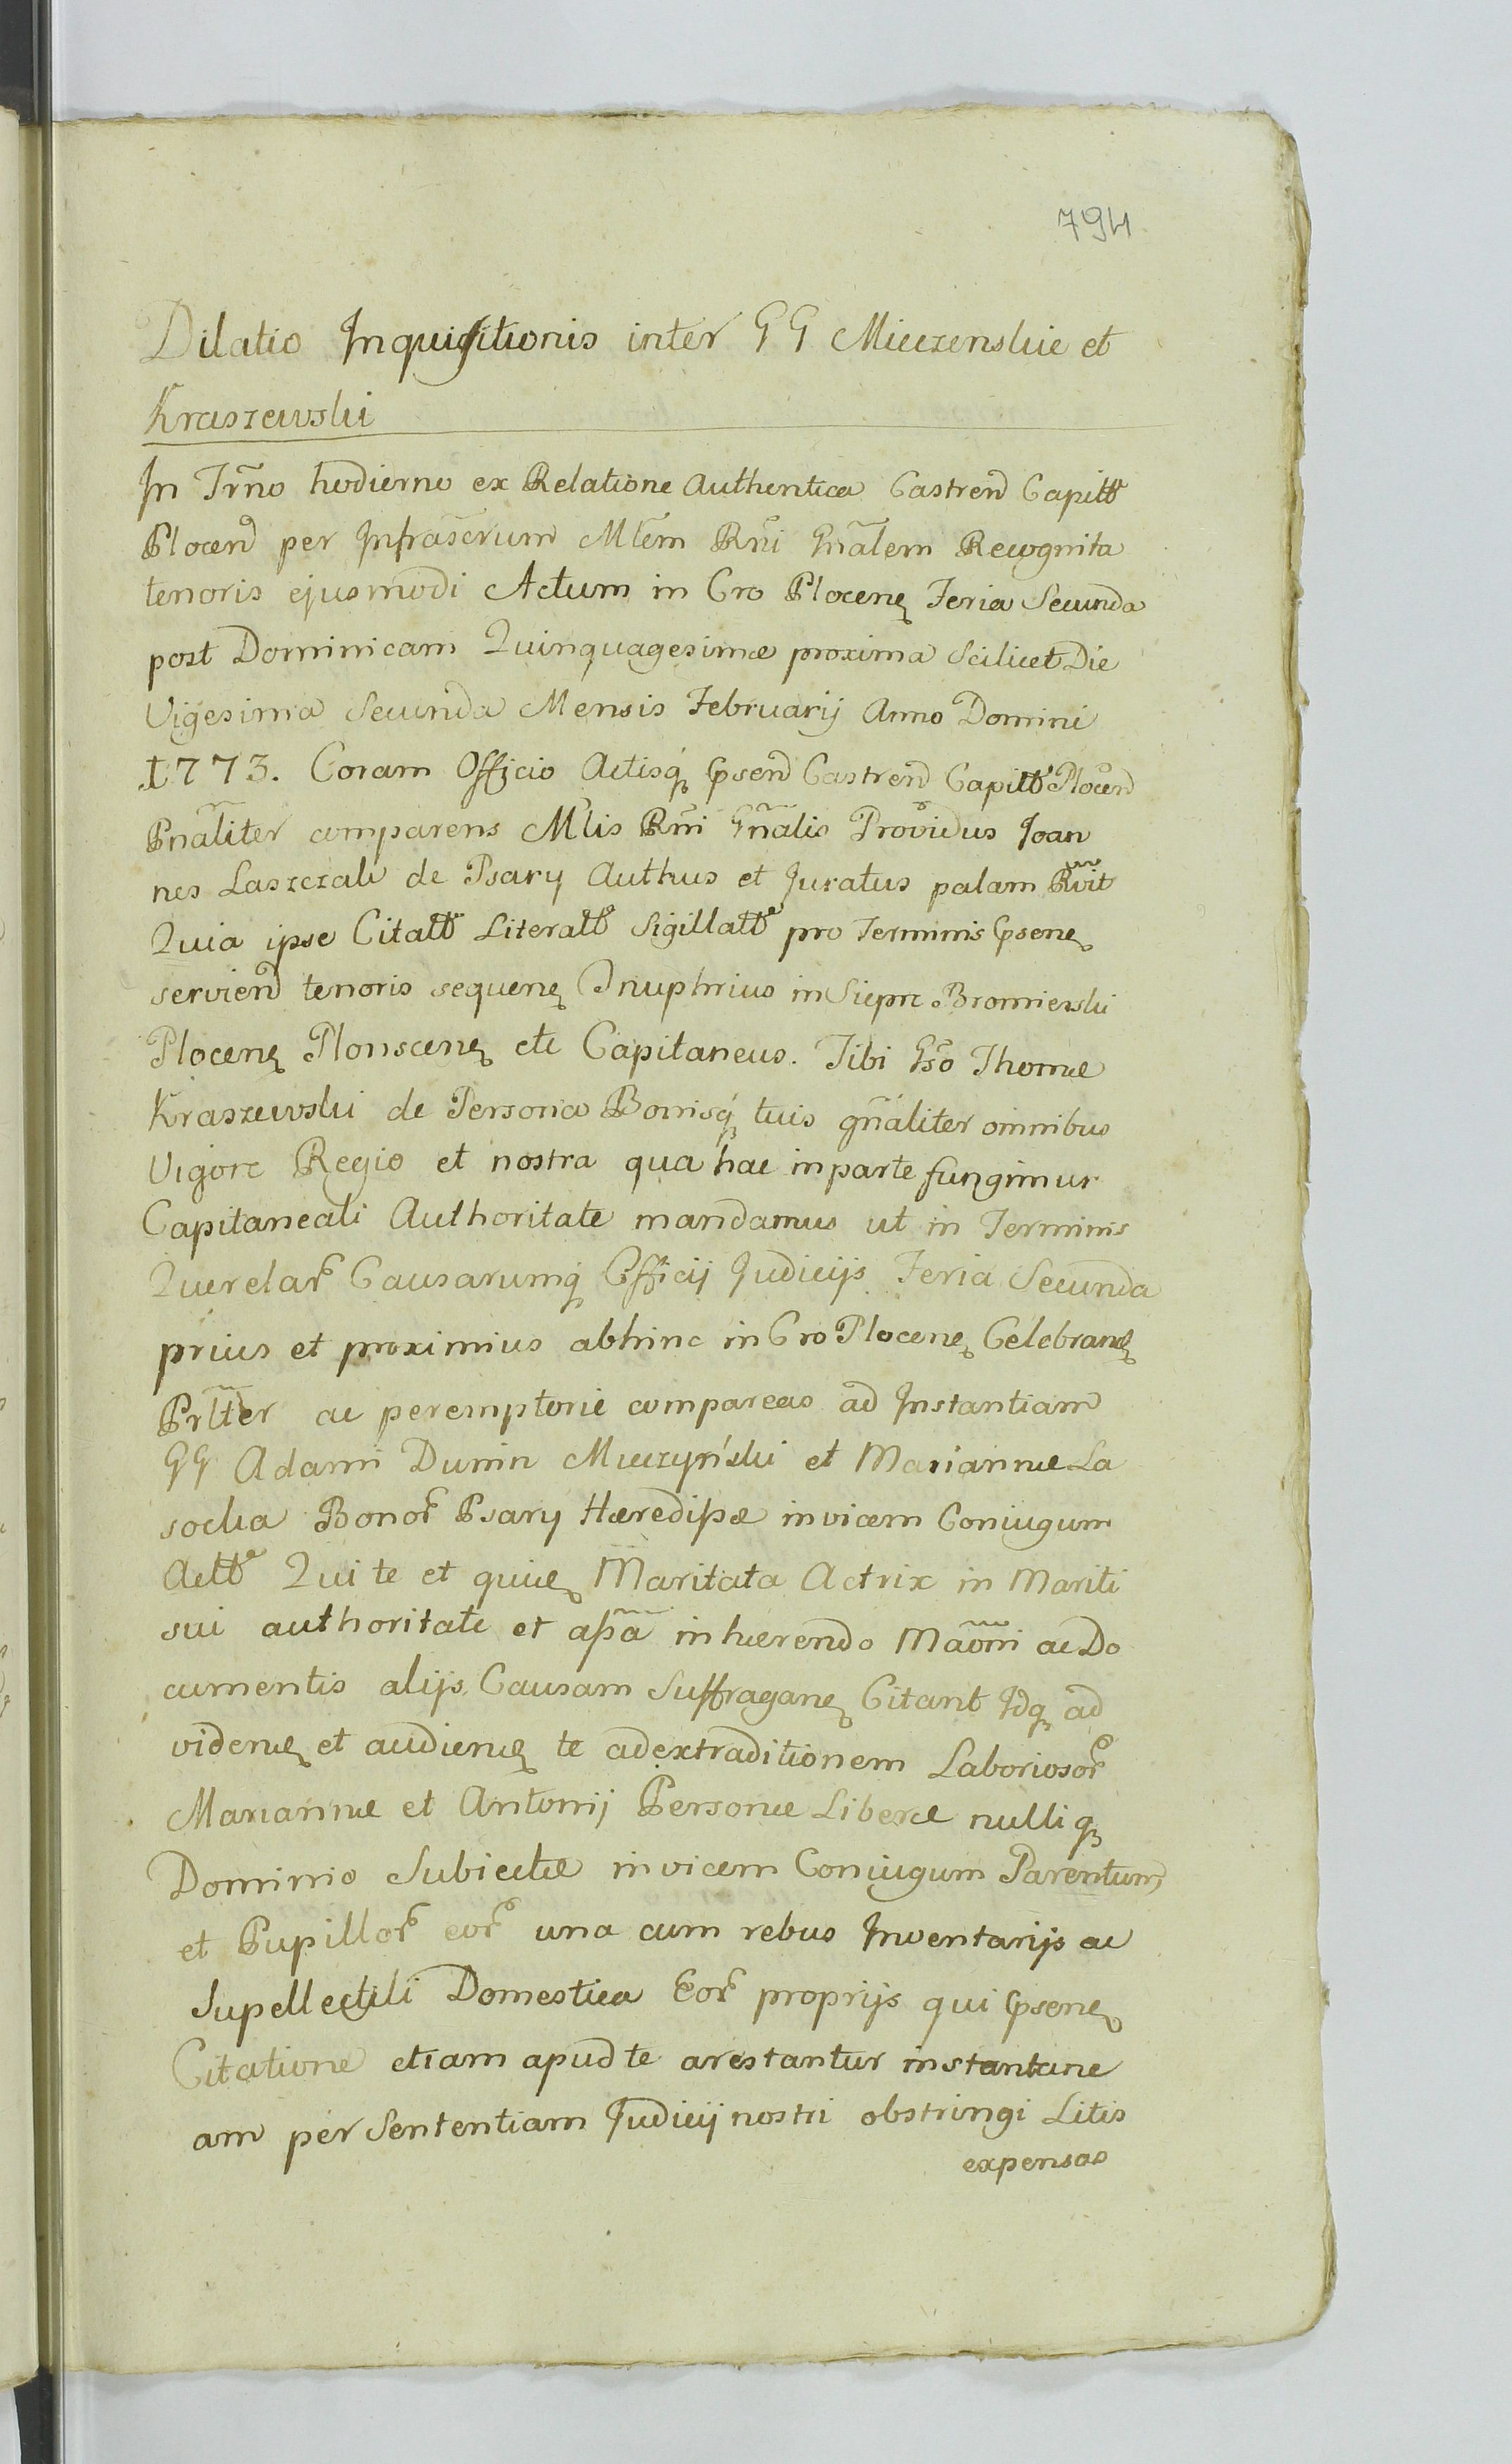 794
Dilatio Inquisitionis inter GG Mieczenskie et
Kraszewski
In Trño hodierno ex Relatione Authentica Castren Capitt
Plocen per Infrascrum Mlem Rñi Gñalem Recognita
tenoris ejusmodi Actum in Cro Plocen Feria Secunda
post Dominicam Quinquagesimæ proxima Scilicet Die
Vigesima Secunda Mensis Februarij Anno Domini
1773. Coram Officio Actisq Psen Castren Capitt Plocen
Pñaliter comparens Mlis Rñi Gñalis Providus Joan
nes Laszczak de Psary Authus et Juratus palam Rvit
Quia ipse Citatt Literatt Sigillatt pro Terminis Psen
servien tenoris sequen Onuphrius in Siepre Bromierski
Plocen Plonscen etc Capitaneus. Tibi Gso Thomæ
Kraszewski de Persona Bonisq tuis gñaliter omnibus
Vigore Regio et nostra qua hac in parte fungimur
Capitaneali Authoritate mandamus ut in Terminis
Querelar Causarumq Officij Judicijs Feria Secunda
prius et proximius abhinc in Cro Plocen Celebran
Prltter ac peremptorie compareas ad Instantiam
GG Adami Dunin Mieczyński et Mariannæ La
socka Bonor Psary Hæredissæ invicem Coniugum
Actt Qui te et quæ Maritata Actrix in Mariti
sui authoritate et assa inhærendo Maõni ac Do
cumentis alijs Causam Suffragan Citant Idq ad
viden et audien te ad extraditionem Laboriosor
Mariannæ et Antonij Personæ Liberæ nulliq
Dominio Subiectæ invicem Coniugum Parentum
et Pupillor eor una cum rebus Inventarijs ac
Supellectili Domestica Eor proprijs qui Psen
Citatione etiam apud te arestantur instantane
am per Sententiam Judicij nostri obstringi Litis
expensas